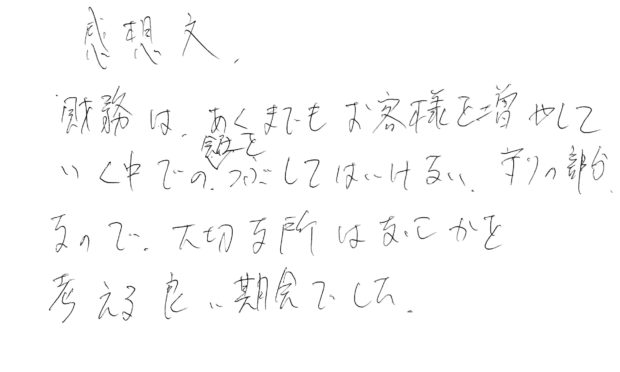 感想文、
財務は、あくまでもお客様を増やして
いく中での、会社をつぶしてはいけない、守りの部分
なので、大切な所はどこかを
考える良い期会でした。